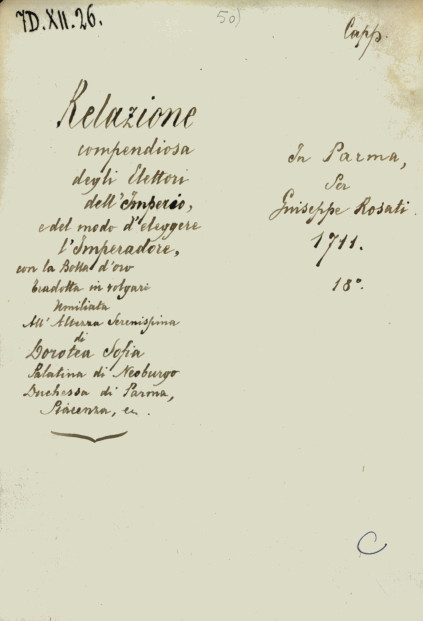 7D.XII.26.
50)
Capp.
Relazione
compendiosa
degli Elettori
dell'Imperio,
e del modo d'eleggere
l'Imperadore,
con la Bolla d'oro
tradotta in volgare
Umiliata
All' Altezza Serenissima
di
Dorotea Sofia
Palatina di Neoburgo
Duchessa di Parma,
Piacenza, ec.
In Parma,
Per
Giuseppe Rosati.
1711.
18°.
C